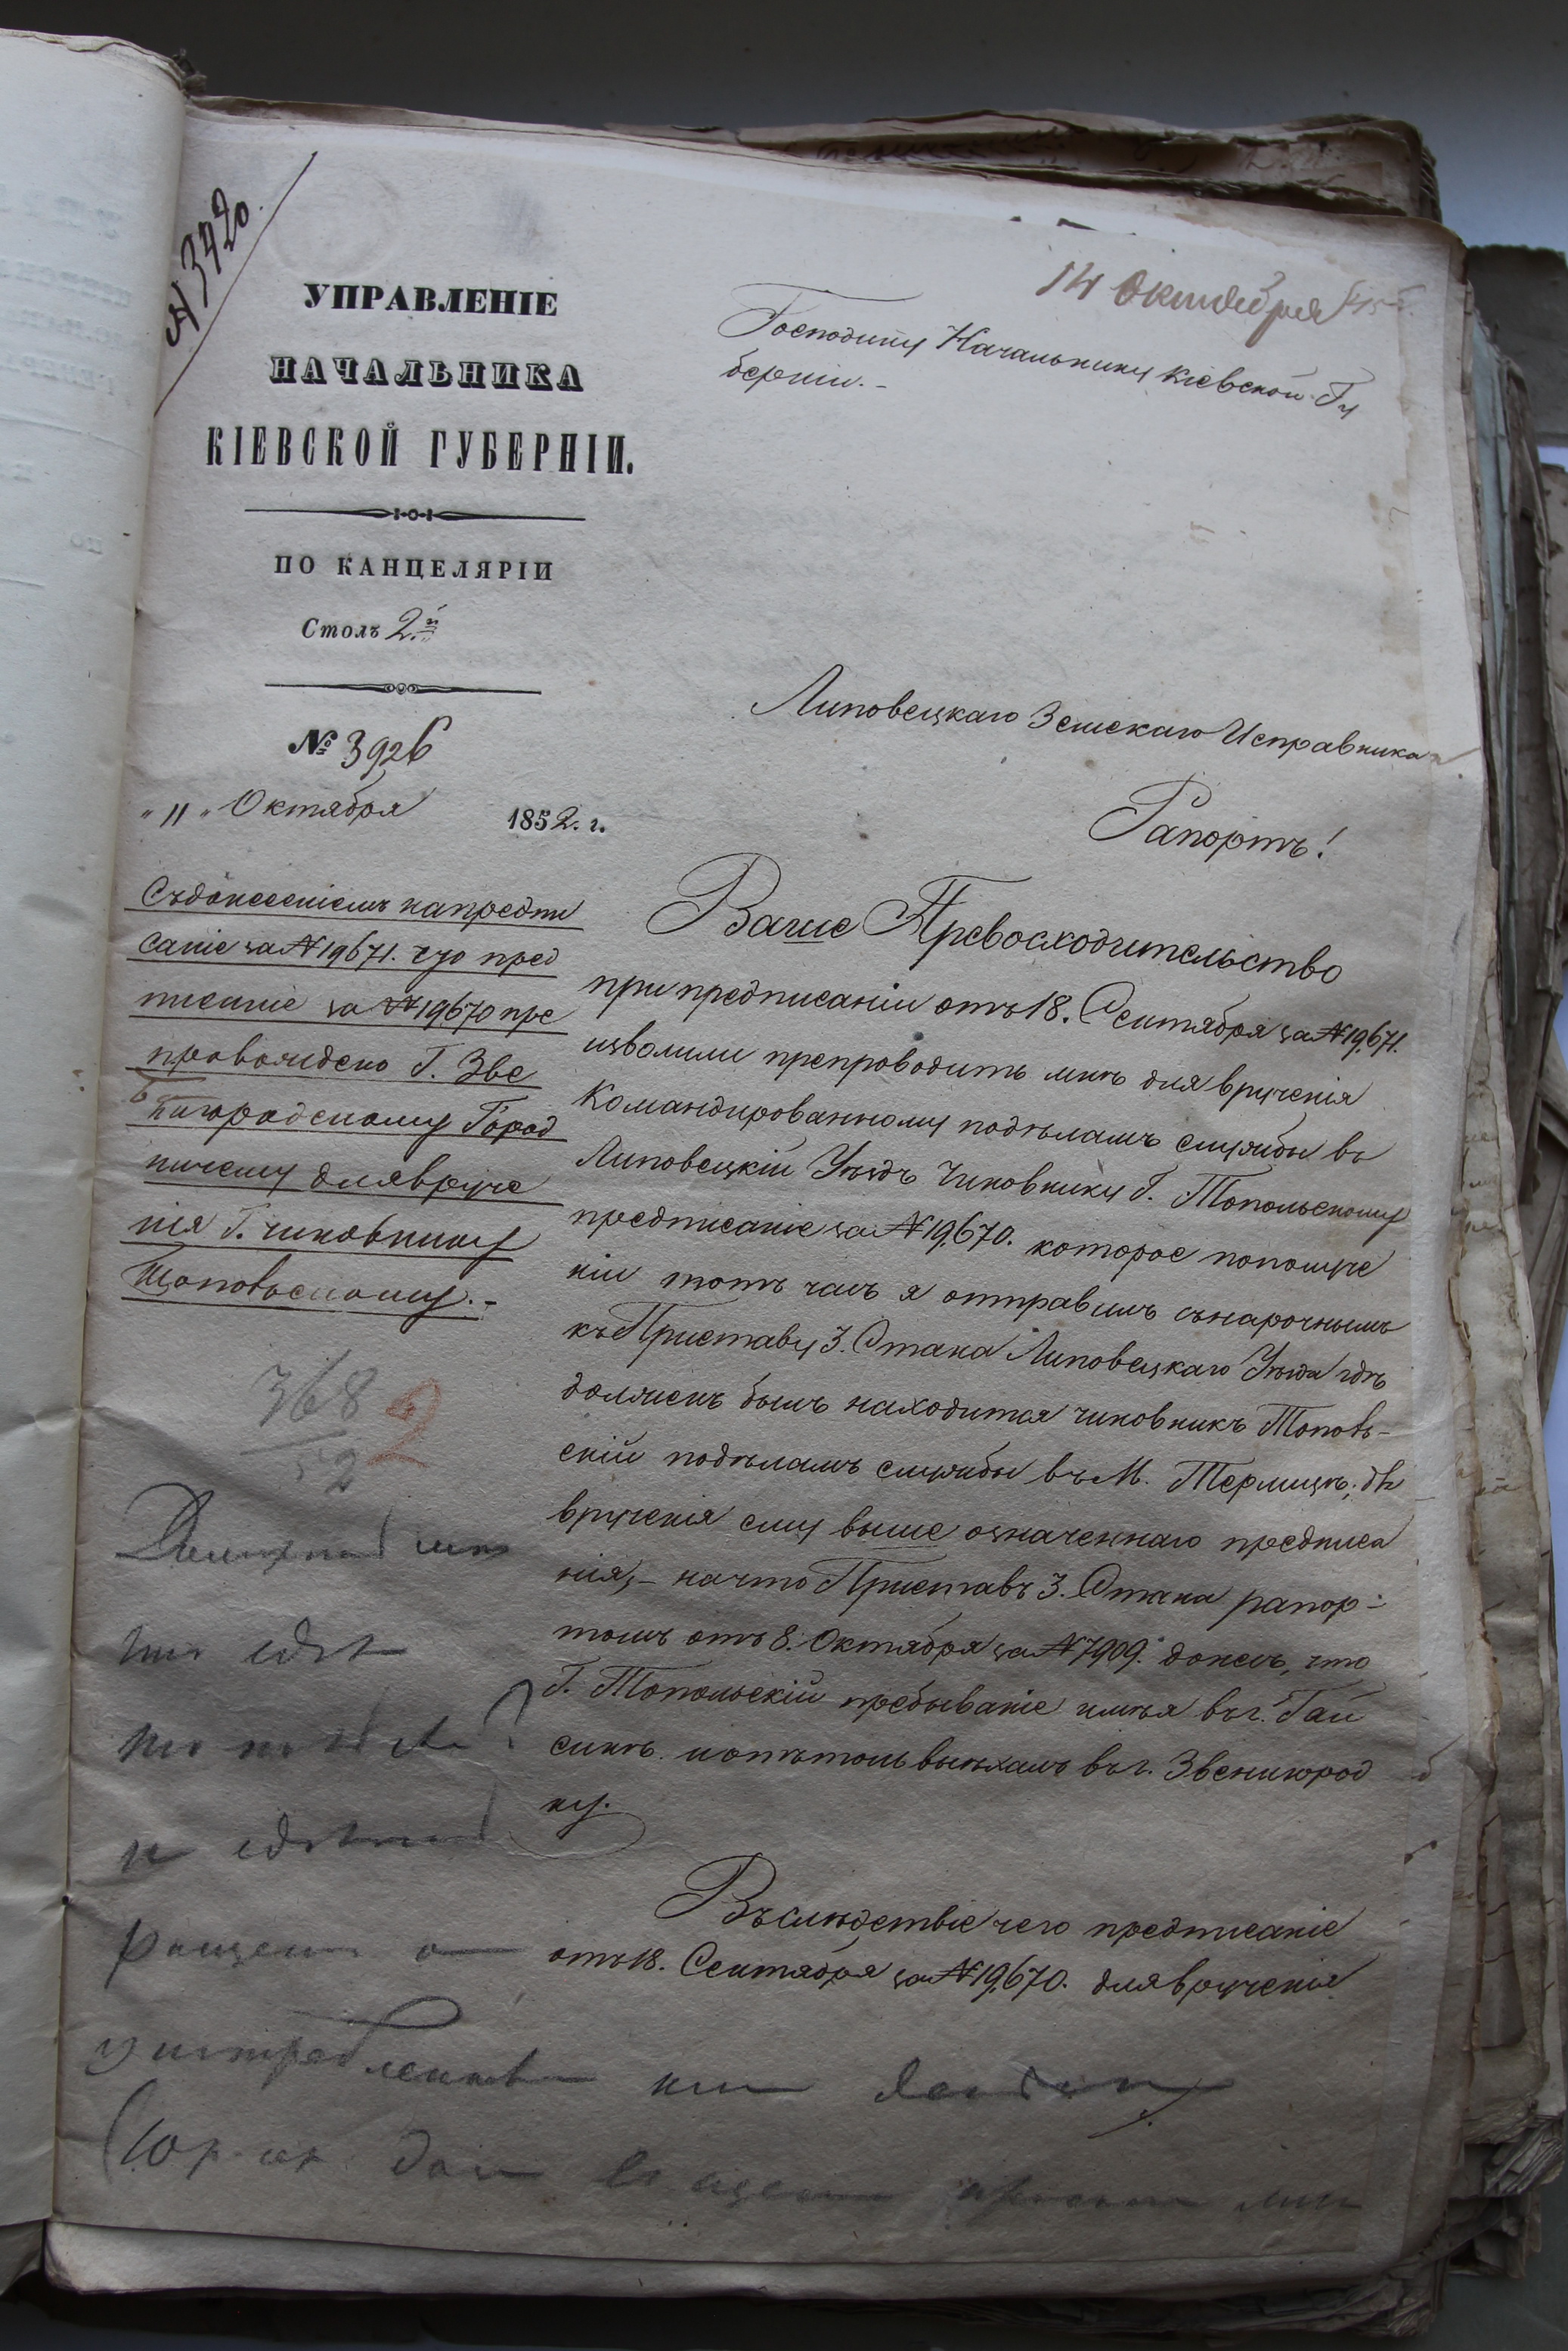 № 3420.
УПРАВЛЕНІЕ
НАЧАЛЬНИКА
КІЕВСКОЙ ГУБЕРНІИ.
ПО КАНЦЕЛЯРІИ
Столъ 2.й
№ 3926
„ 11 „ Октября 1852. г.
Съдонесеніемъ напредпи
саніе за № 19671. что пред
писаніе за № 19670 пре
провождено Г. Зве
нигородскому Город
ничему для вруче
нія Г. чиновнику
Топольскому. -
368
52
2
14 Октября
Господину Начальнику Кіевской Гу
берніи. -
Липовецкаго Земскаго Исправника
Рапортъ!
Ваше Превосходительство
при предписаніи отъ 18. Сентября за № 19,671.
изволили препроводить мнѣ для врученія
Командированному подѣламъ службы въ
Липовецкій Уѣздъ Чиновнику Г. Топольскому
предписаніе за № 19,670. которое пополуче
ніи тотъ часъ я отправилъ съ нарочнымъ
къ Приставу 3. Стана Липовецкаго Уѣзда гдѣ
долженъ былъ находится чиновникъ Тополь-
скій подѣламъ службы въ М. Терлицѣ; для
врученія ему выше означеннаго предписа
нія, - на что Приставъ 3. Стана рапор-
томъ отъ 8. Октября за № 7909. донесъ, что
Г. Топольскій пребываніе имѣя въ г. Гай
синѣ. и оттоль выѣхалъ въ г. Звенигород
ку.
Въслѣдствіе чего предписаніе
отъ 18. Сентября за № 19,670. для врученія